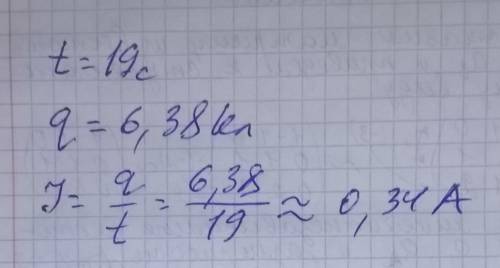 t = 19с
q = 6,38 Кл
J = q/t = 6,38/19 ≈ 0,34 А